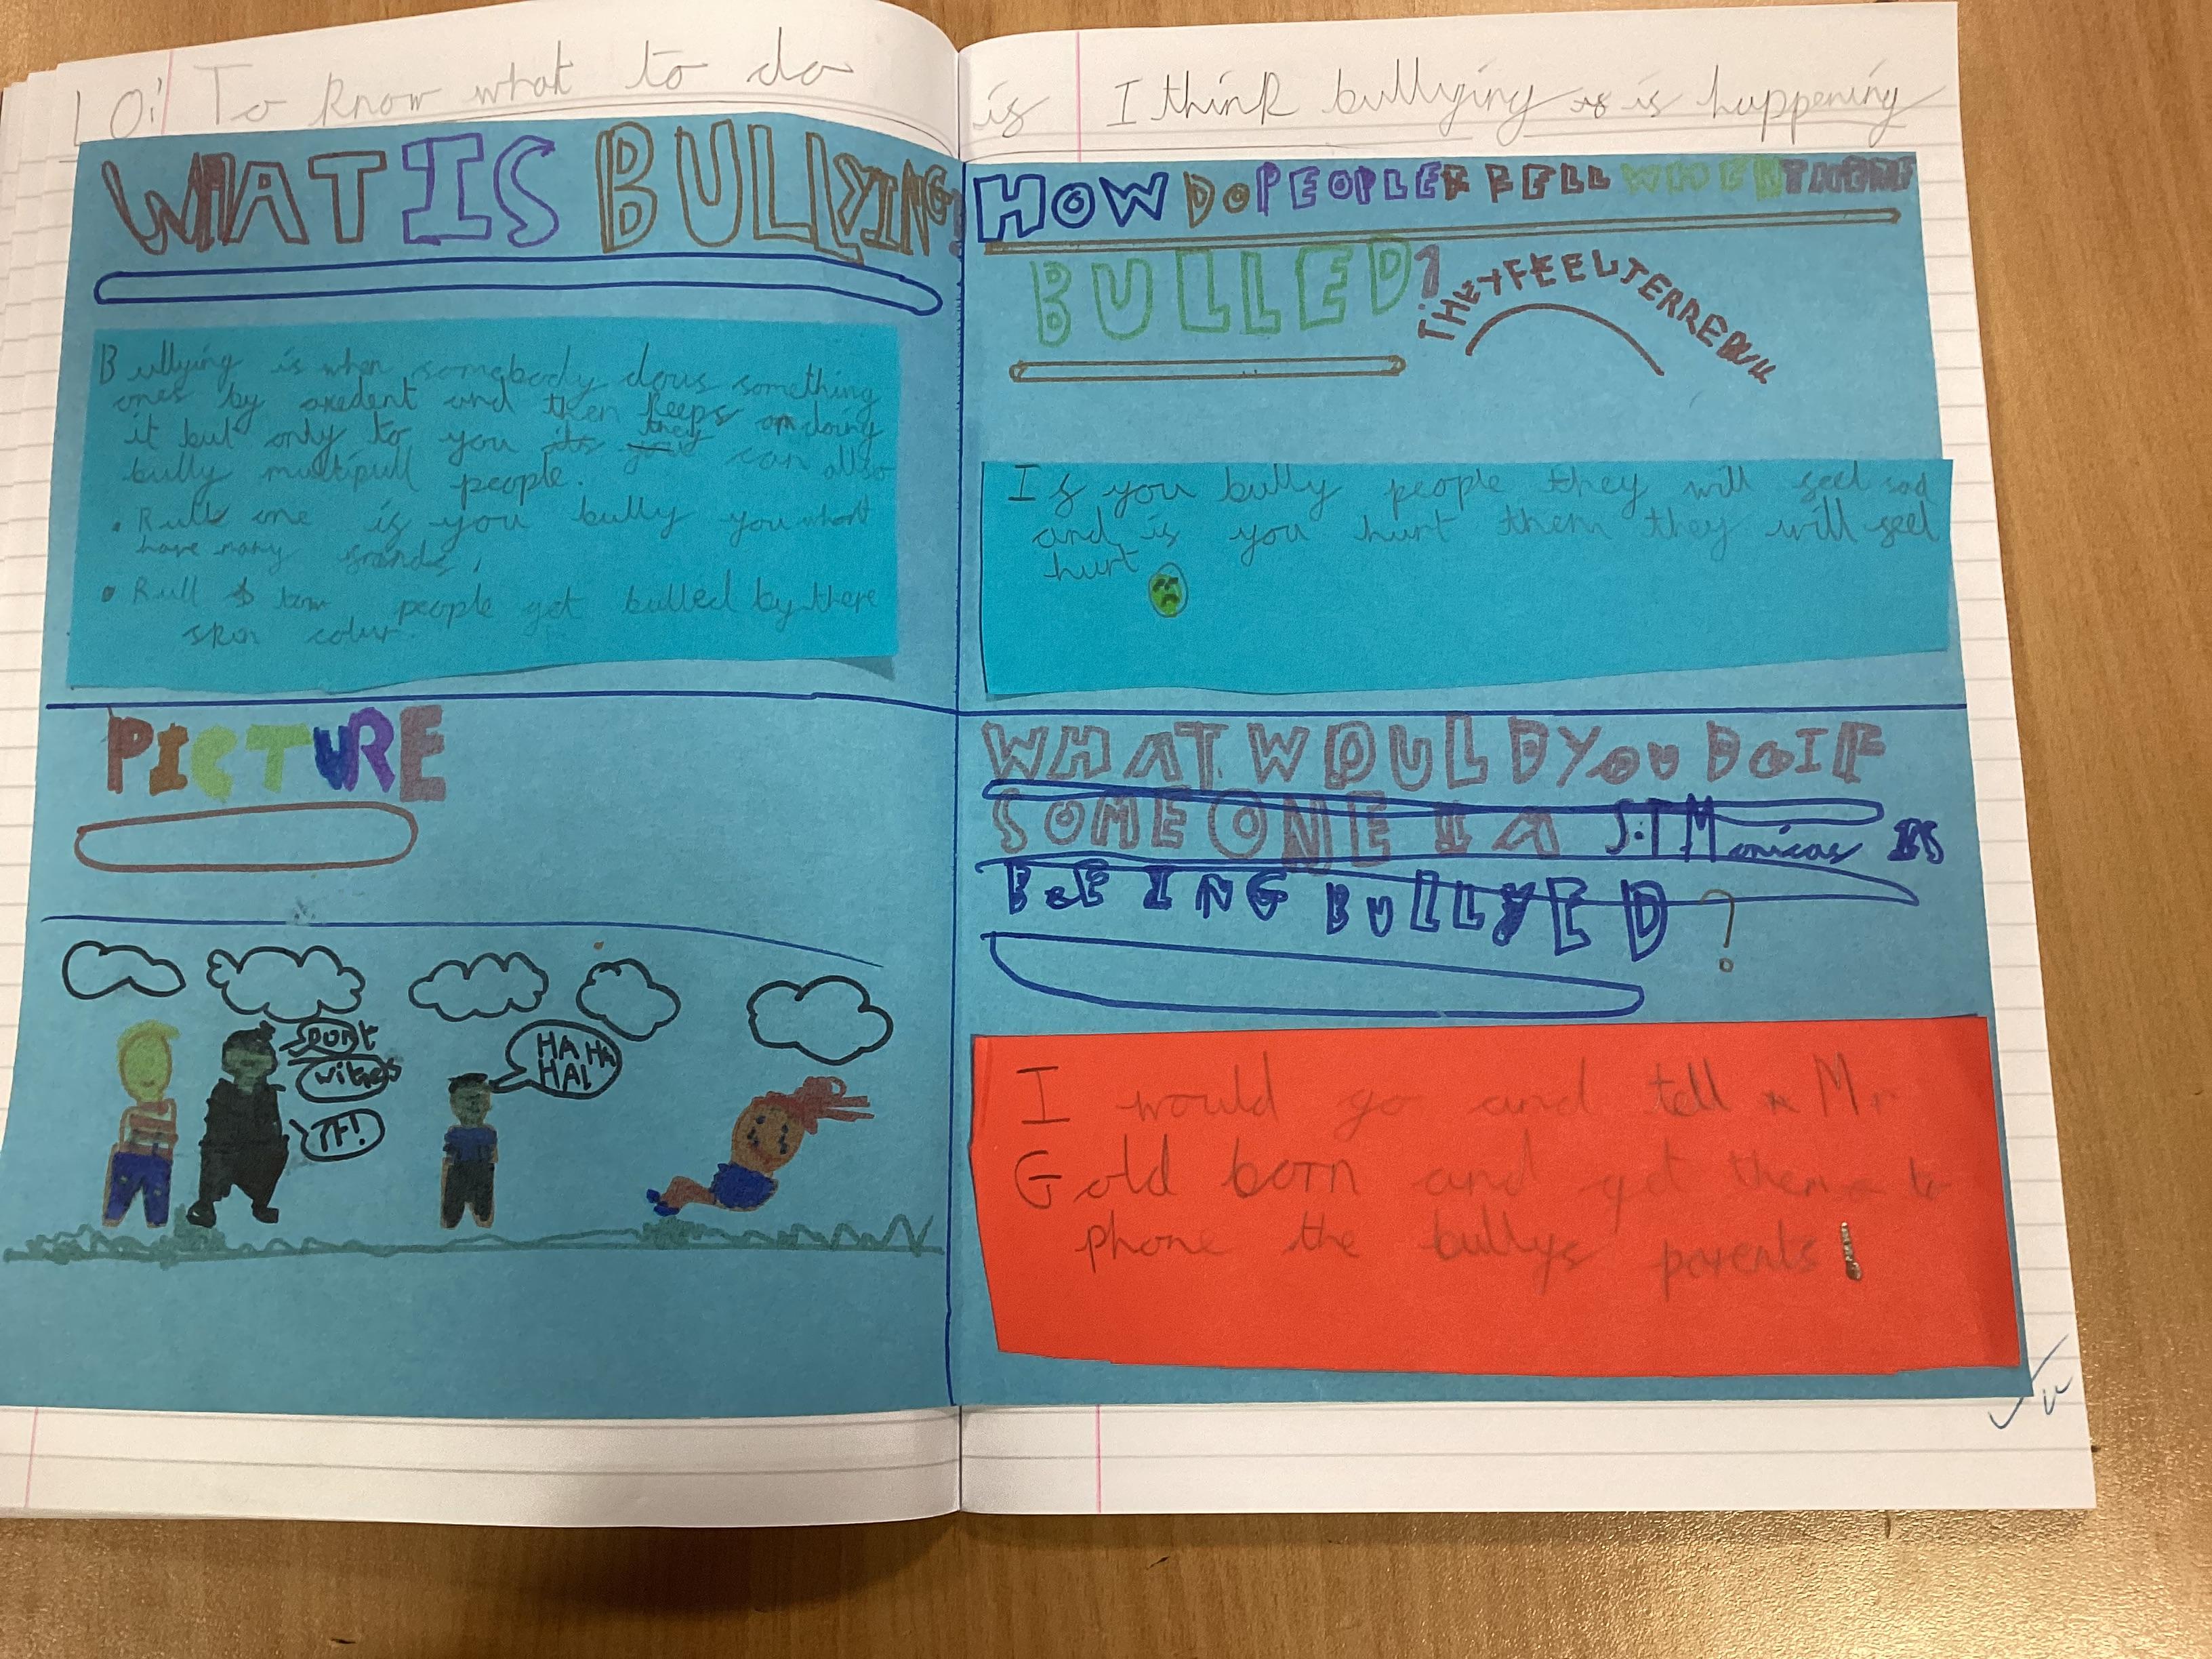 LO: To know what to do is I think bullying is happening
WHAT IS BULLYING
Bullying is when somebody dous something
ones by axedent and then keeps on doing
it but only to you they can allso
bully multipull people.
• Rull one is you bully you whont
have many frands,
• Rull tow people get bulled by there
skin colur.
PICTURE
DONT
Witnes
IT!
HA HA
HA!
HOW DO PEOPLE FELL WHEN THERE
BULLED?
THEY FEEL TERREBULL
If you bully people they will feel sad
and if you hurt them they will feel
hurt
WHAT WOULD YOU DO IF
SOMEONE IS.T Monicas IS
BEING BULLYED?
I would go and tell Mr
Gold born and get them to
phone the bullys parents!